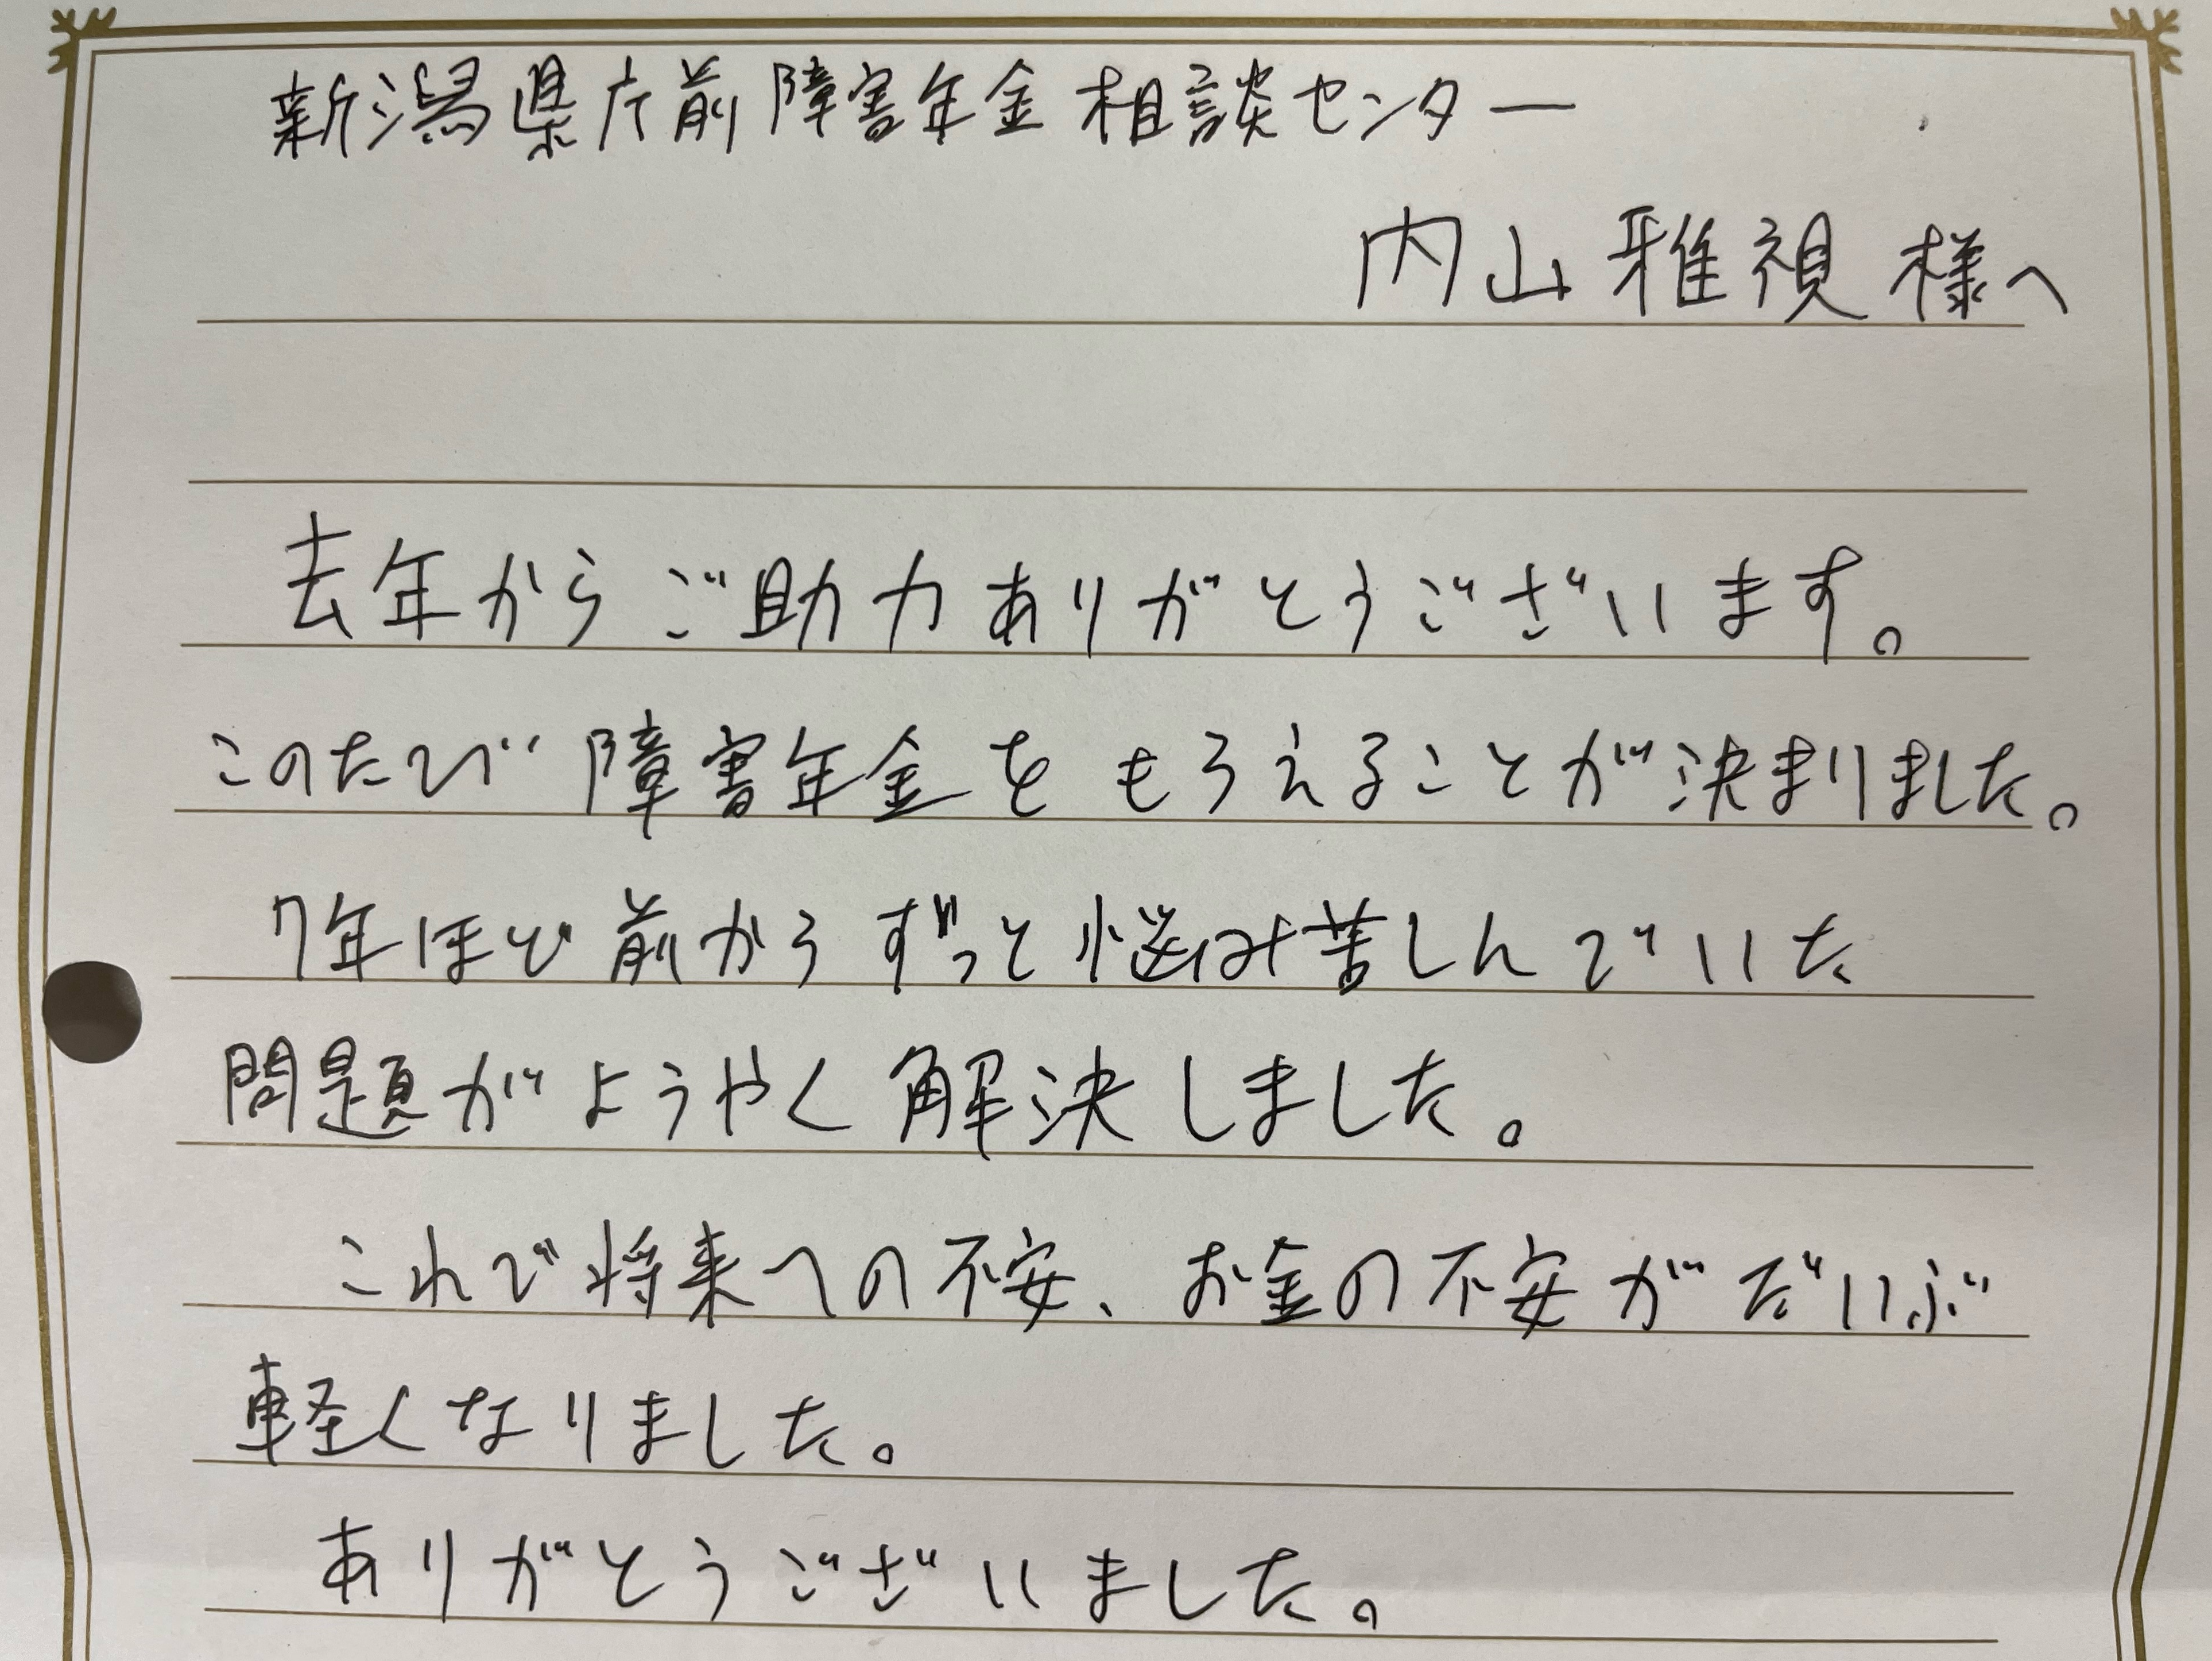 新潟県庁前障害年金相談センター
内山雅視様へ
去年からご助力ありがとうございます。
このたび障害年金をもらえることが決まりました。
7年ほど前からずっと悩み苦しんでいた
問題がようやく解決しました。
これで将来への不安、お金の不安がだいぶ
軽くなりました。
ありがとうございました。